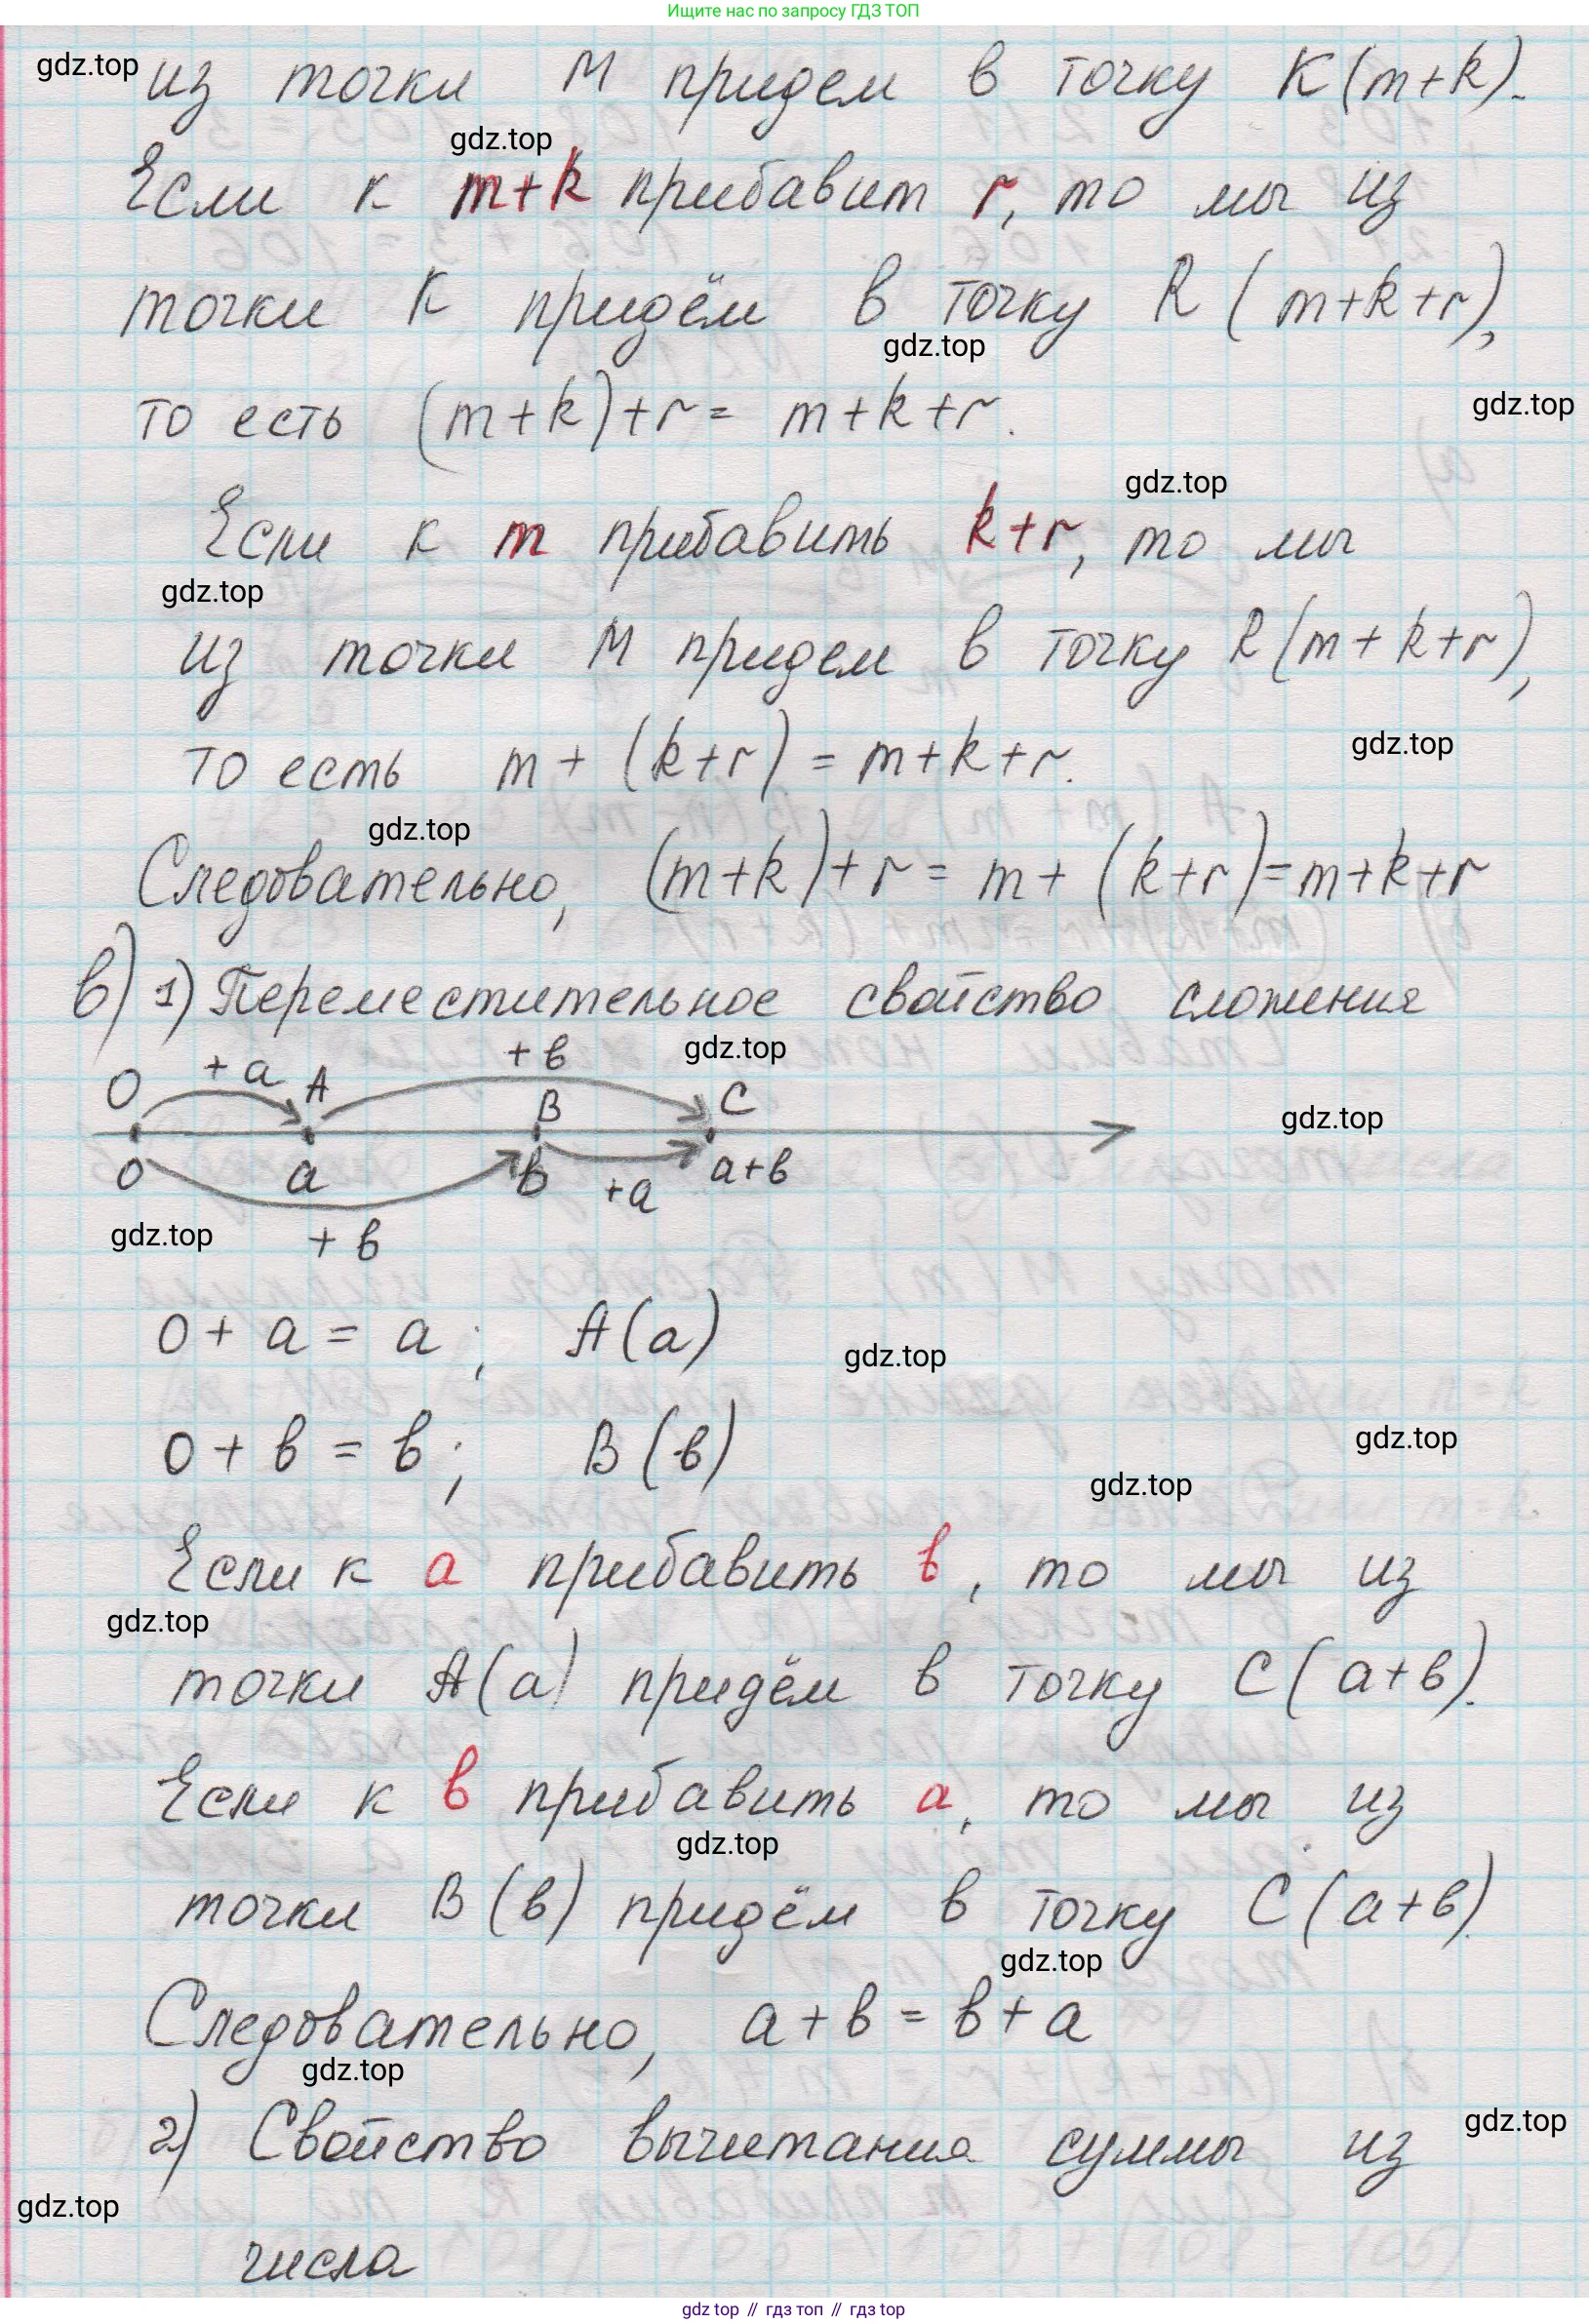 Ищите нас по запросу ГДЗ ТОП
gdz.top
из точки M придем в точку K(m+k).
gdz.top
Если к m+k прибавит r, то мы из
точки K придём в точку R(m+k+r),
gdz.top
то есть (m+k)+r = m+k+r.
gdz.top
gdz.top
Если к m прибавить k+r, то мы
gdz.top
из точки M придем в точку R(m+k+r),
то есть m+(k+r) = m+k+r.
gdz.top
gdz.top
Следовательно, (m+k)+r = m+(k+r)=m+k+r
в) 1) Переместительное свойство сложения
+a +в gdz.top
O A B C
gdz.top
0 a в a+в
+a
gdz.top
+в
0+a=a; A(a)
gdz.top
0+в=в; B(в)
gdz.top
gdz.top
Если к a прибавить в, то мы из
gdz.top
точки A(a) придём в точку C(a+в).
Если к в прибавить a, то мы из
gdz.top
точки B(в) придём в точку C(a+в).
gdz.top
Следовательно, a+в=в+a
gdz.top
2) Свойство вычитания суммы из
gdz.top
gdz.top
числа
gdz top // гдз топ // gdz top